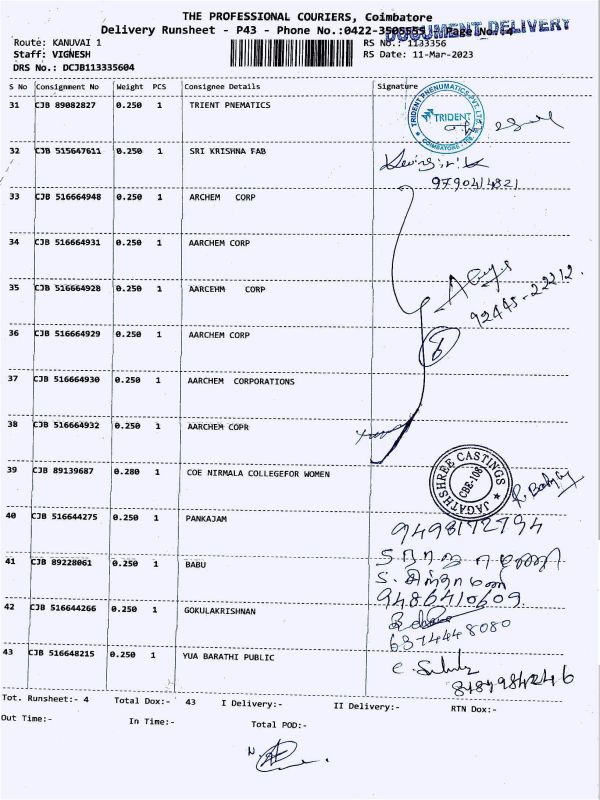 THE PROFESSIONAL COURIERS, Coimbatore
Delivery Runsheet - P43 - Phone No.:0422-3505555 Page No.:4
DOCUMENT DELIVERY
Route: KANUVAI 1 RS No.: 1133356
Staff: VIGNESH RS Date: 11-Mar-2023
DRS No.: DCJB113335604
S No Consignment No Weight PCS Consignee Details Signature
31 CJB 89082827 0.250 1 TRIENT PNEMATICS
TRIDENT PNEUMATICS PVT. LTD.
TRIDENT
COIMBATORE
32 CJB 515647611 0.250 1 SRI KRISHNA FAB
9790414821
33 CJB 516664948 0.250 1 ARCHEM CORP
34 CJB 516664931 0.250 1 AARCHEM CORP
35 CJB 516664928 0.250 1 AARCEHM CORP
92445-22212.
36 CJB 516664929 0.250 1 AARCHEM CORP
6
37 CJB 516664930 0.250 1 AARCHEM CORPORATIONS
38 CJB 516664932 0.250 1 AARCHEM COPR
39 CJB 89139687 0.280 1 COE NIRMALA COLLEGEFOR WOMEN
JAGATHSHREE CASTINGS
CBE-108
40 CJB 516644275 0.250 1 PANKAJAM
9498172794
41 CJB 89228061 0.250 1 BABU
9486410609
42 CJB 516644266 0.250 1 GOKULAKRISHNAN
6374448080
43 CJB 516648215 0.250 1 YUA BARATHI PUBLIC
8489984246
Tot. Runsheet:- 4 Total Dox:- 43 I Delivery:- II Delivery:- RTN Dox:-
Out Time:- In Time:- Total POD:-